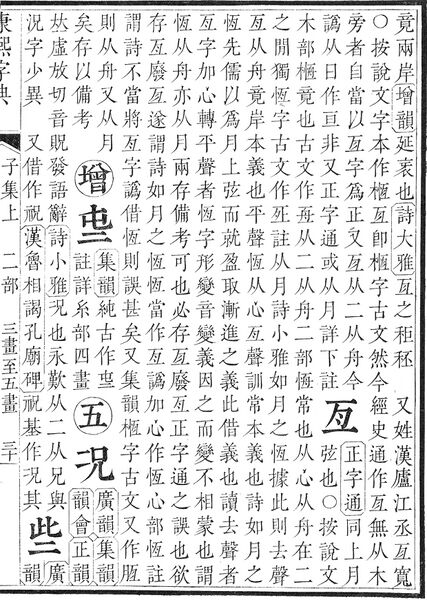 竟兩岸增韻延袤也詩大雅亙之秬秠　又姓漢廬江丞亙寬
○按說文字本作㮓亙卽㮓字古文然今經史通作亙無从木
旁者自當以亙字為正又亙从二从舟今
譌从日作亘非又正字通或从月詳下註
𠄢
正字通同上月
弦也○按說文
木部㮓竟也古文作亙从二从舟二部恆常也从心从舟在二
之閒獨恆字古文作𠄨註从月詩小雅如月之恆據此則去聲
亙从舟竟岸本義也平聲恆从心亙聲訓常本義也詩如月之
恆先儒以為月上弦而就盈取漸進之義此借義也讀去聲者
亙字加心轉平聲者恆字形變音變義因之而變不相蒙也謂
恆从舟亦从月兩存備考可也必存亙廢𠄢正字通之誤也欲
存𠄢廢亙遂謂詩如月之恆恆當作𠄢譌加心作恆心部恆註
謂詩不當將亙字譌借恆則誤甚矣又集韻㮓字古文又作
則从舟又从月
矣存以備考
增
集韻純古作
註詳糸部四畫
五
况
廣韻集韻
韻會正韻
𠀤虛放切音貺發語辭詩小雅况也永歎从二从兄與
況字少異　又借作祝漢魯相謁孔廟碑祝基作况其
些
廣
韻
康熙字典
子集上　二部　三畫至五畫　三十